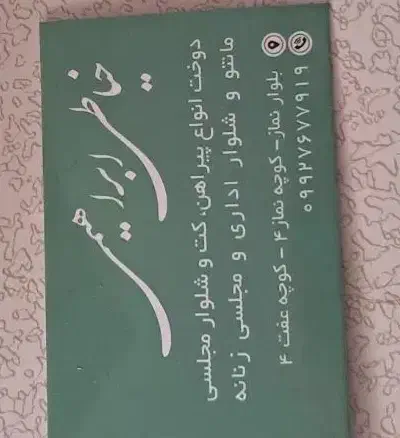 خیاطی ابراهیمی
دوخت انواع پیراهن، کت و شلوار مجلسی
مانتو و شلوار اداری و مجلسی زنانه
بلوار نماز - کوچه نماز ۴ - کوچه عفت ۴
۰۹۹۲۷۶۷۷۹۱۹